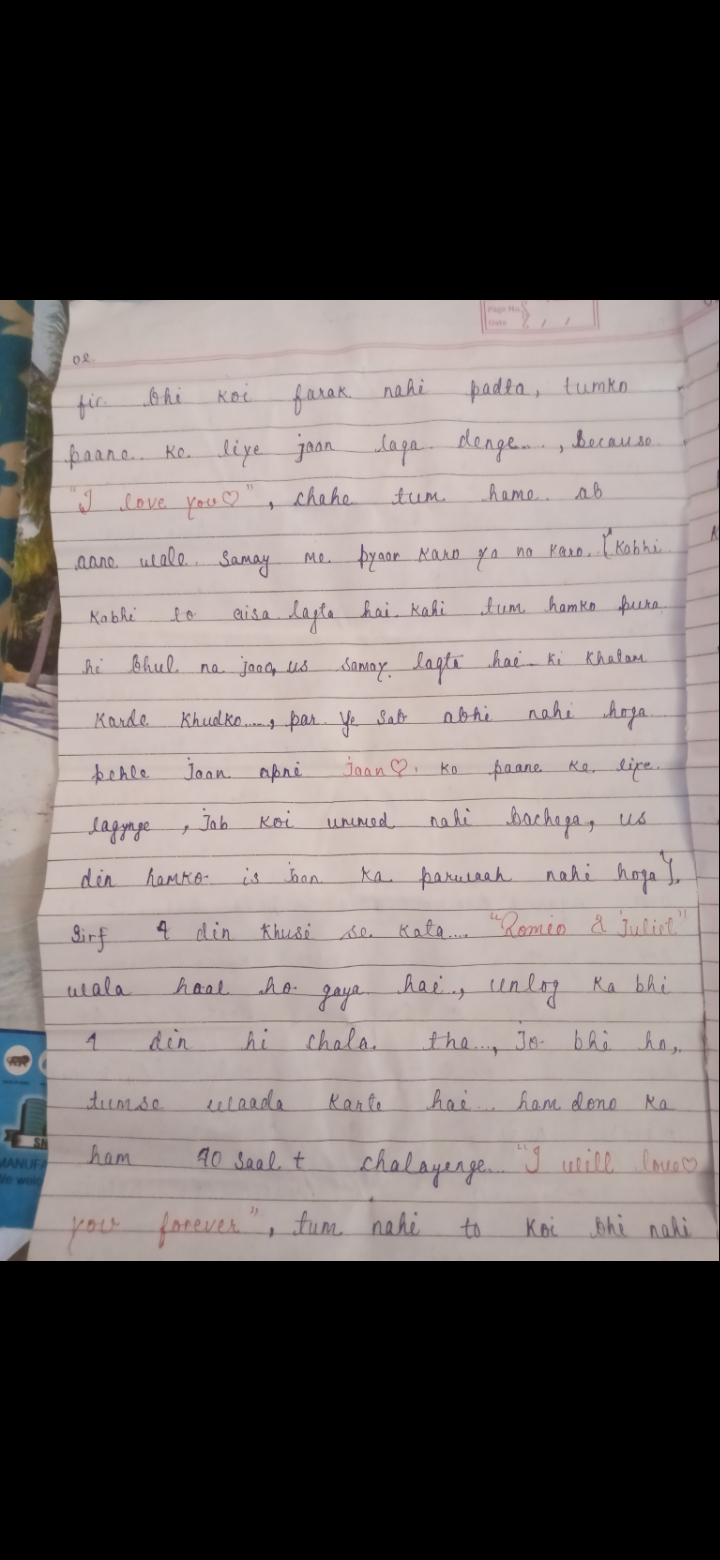 Page No.
Date / /
02.
fir bhi koi farak nahi padta, tumko
paane ke liye jaan laga denge..., because
"I love you♡", chahe tum hame ab
aane wale samay me pyaar karo ya na karo. [Kabhi
kabhi to aisa lagta hai kahi tum hamko pura
hi bhul na jaao, us samay lagta hai ki khatam
karde khudko...., par ye sab abhi nahi hoga
pehle jaan apni jaan♡ ko paane ke liye
lagynge, Jab koi ummed nahi bachega, us
din hamko is jaan ka parwaah nahi hoga].
Sirf 4 din khusi se kata.... "Romio & Juliet"
wala haal ho gaya hai., unlog ka bhi
4 din hi chala tha..., Jo bhi ho,.
tumse waada karte hai... ham dono ka
ham 40 saal + chalayenge.. "I will love♡
you forever", tum nahi to koi bhi nahi
SN
MANUFA